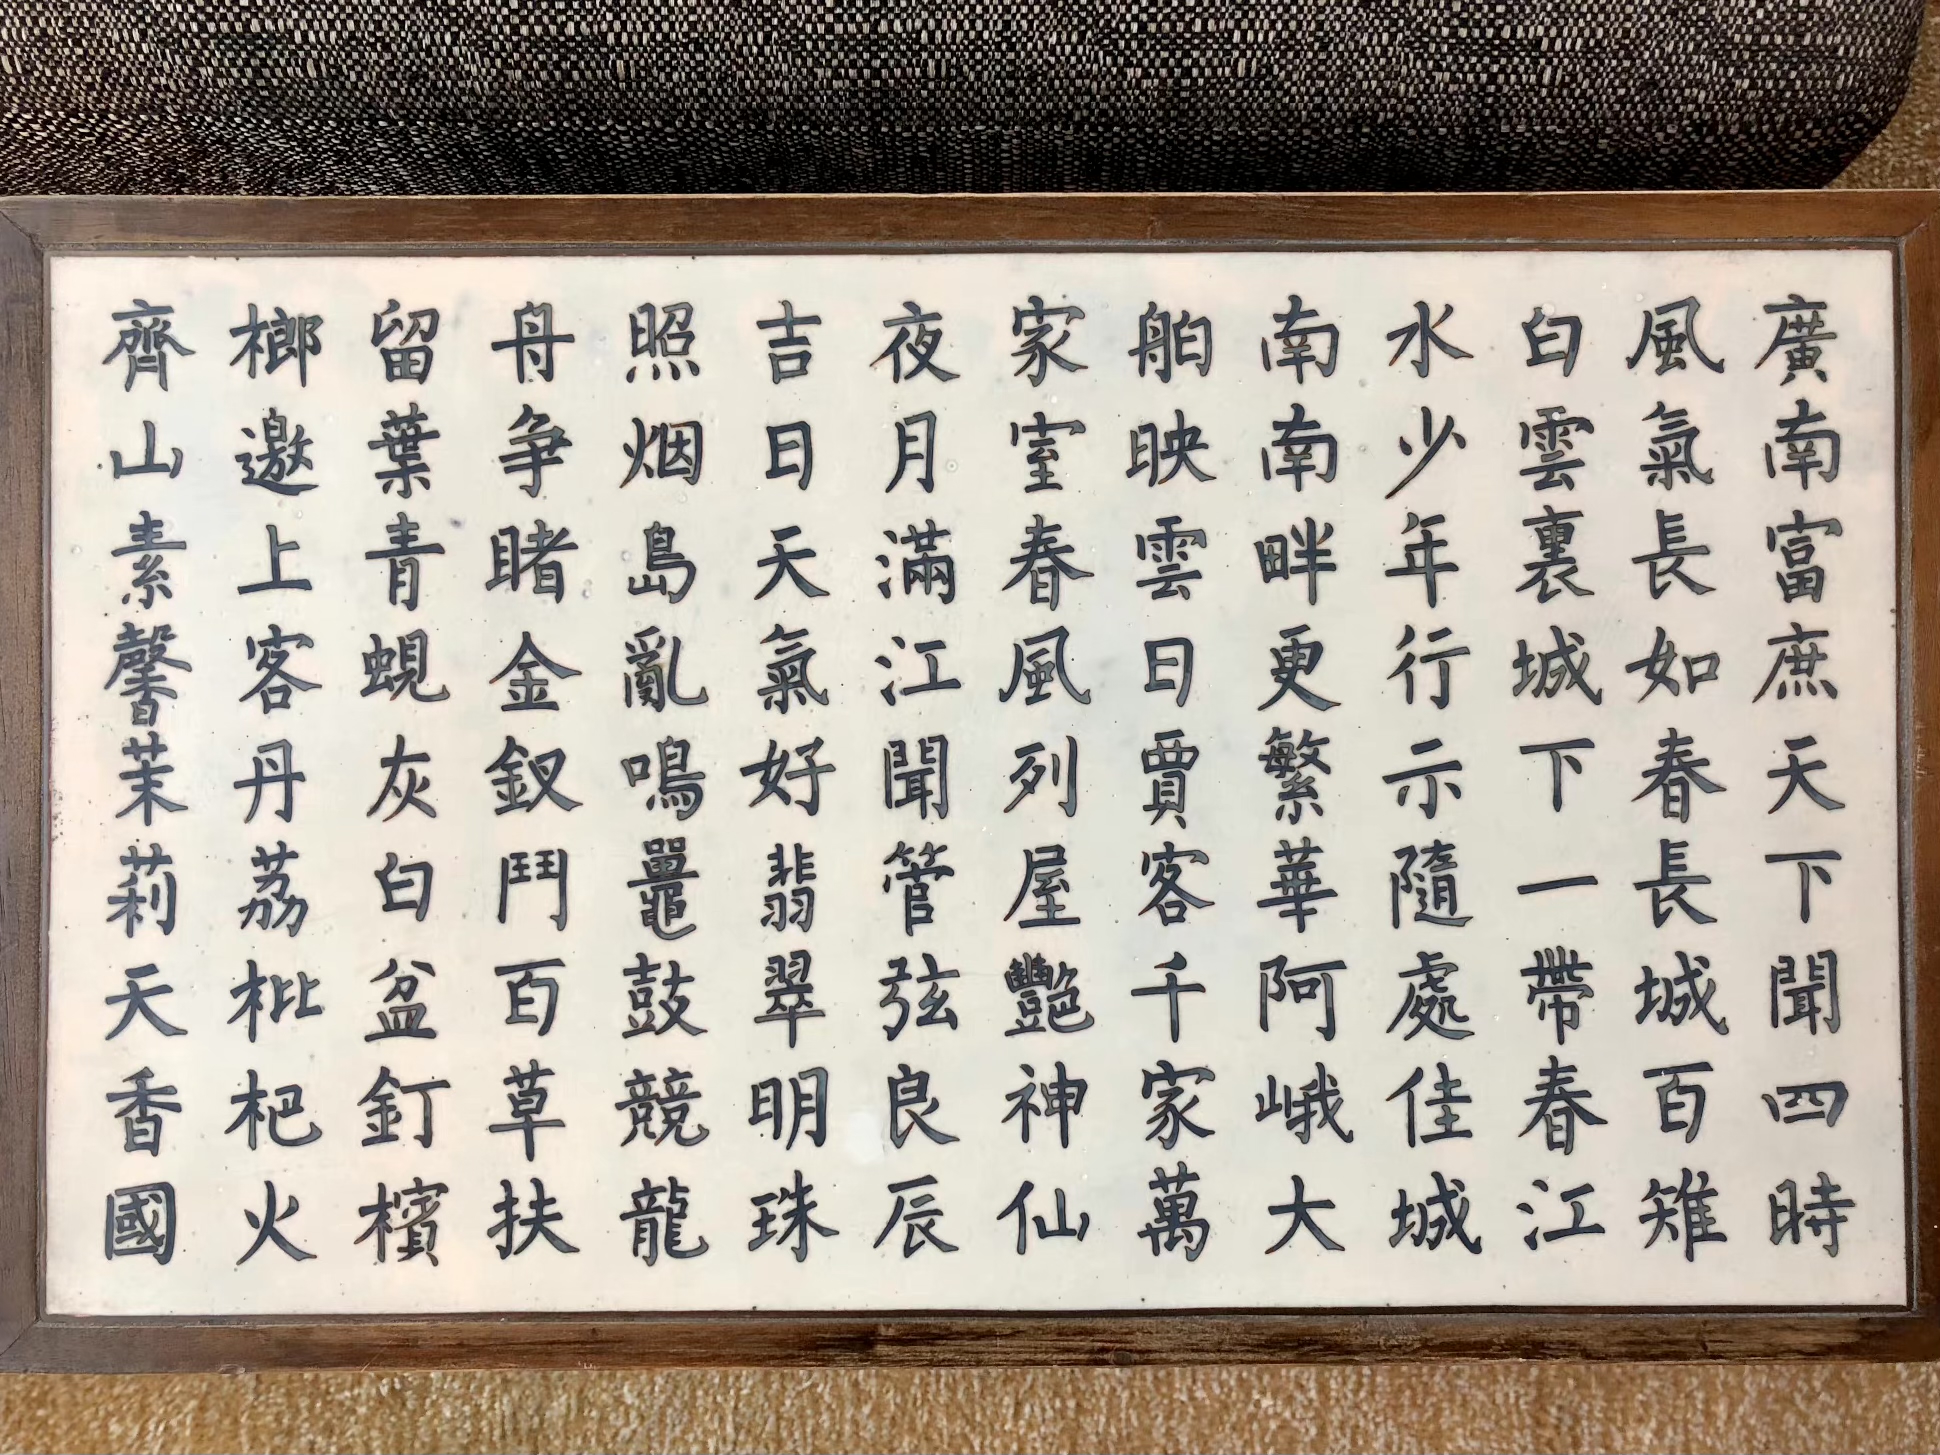 廣南富庶天下聞四時
風氣長如春長城百雉
白雲裏城下一帶春江
水少年行示隨處佳城
南南畔更繁華阿峨大
舶映雲日賈客千家萬
家室春風列屋艷神仙
夜月滿江聞管弦良辰
吉日天氣好翡翠明珠
照烟島亂鳴鼉鼓競龍
舟争睹金釵鬥百草扶
留葉青蜆灰白盆釘檳
榔邀上客丹荔枇杷火
齊山素馨茉莉天香國